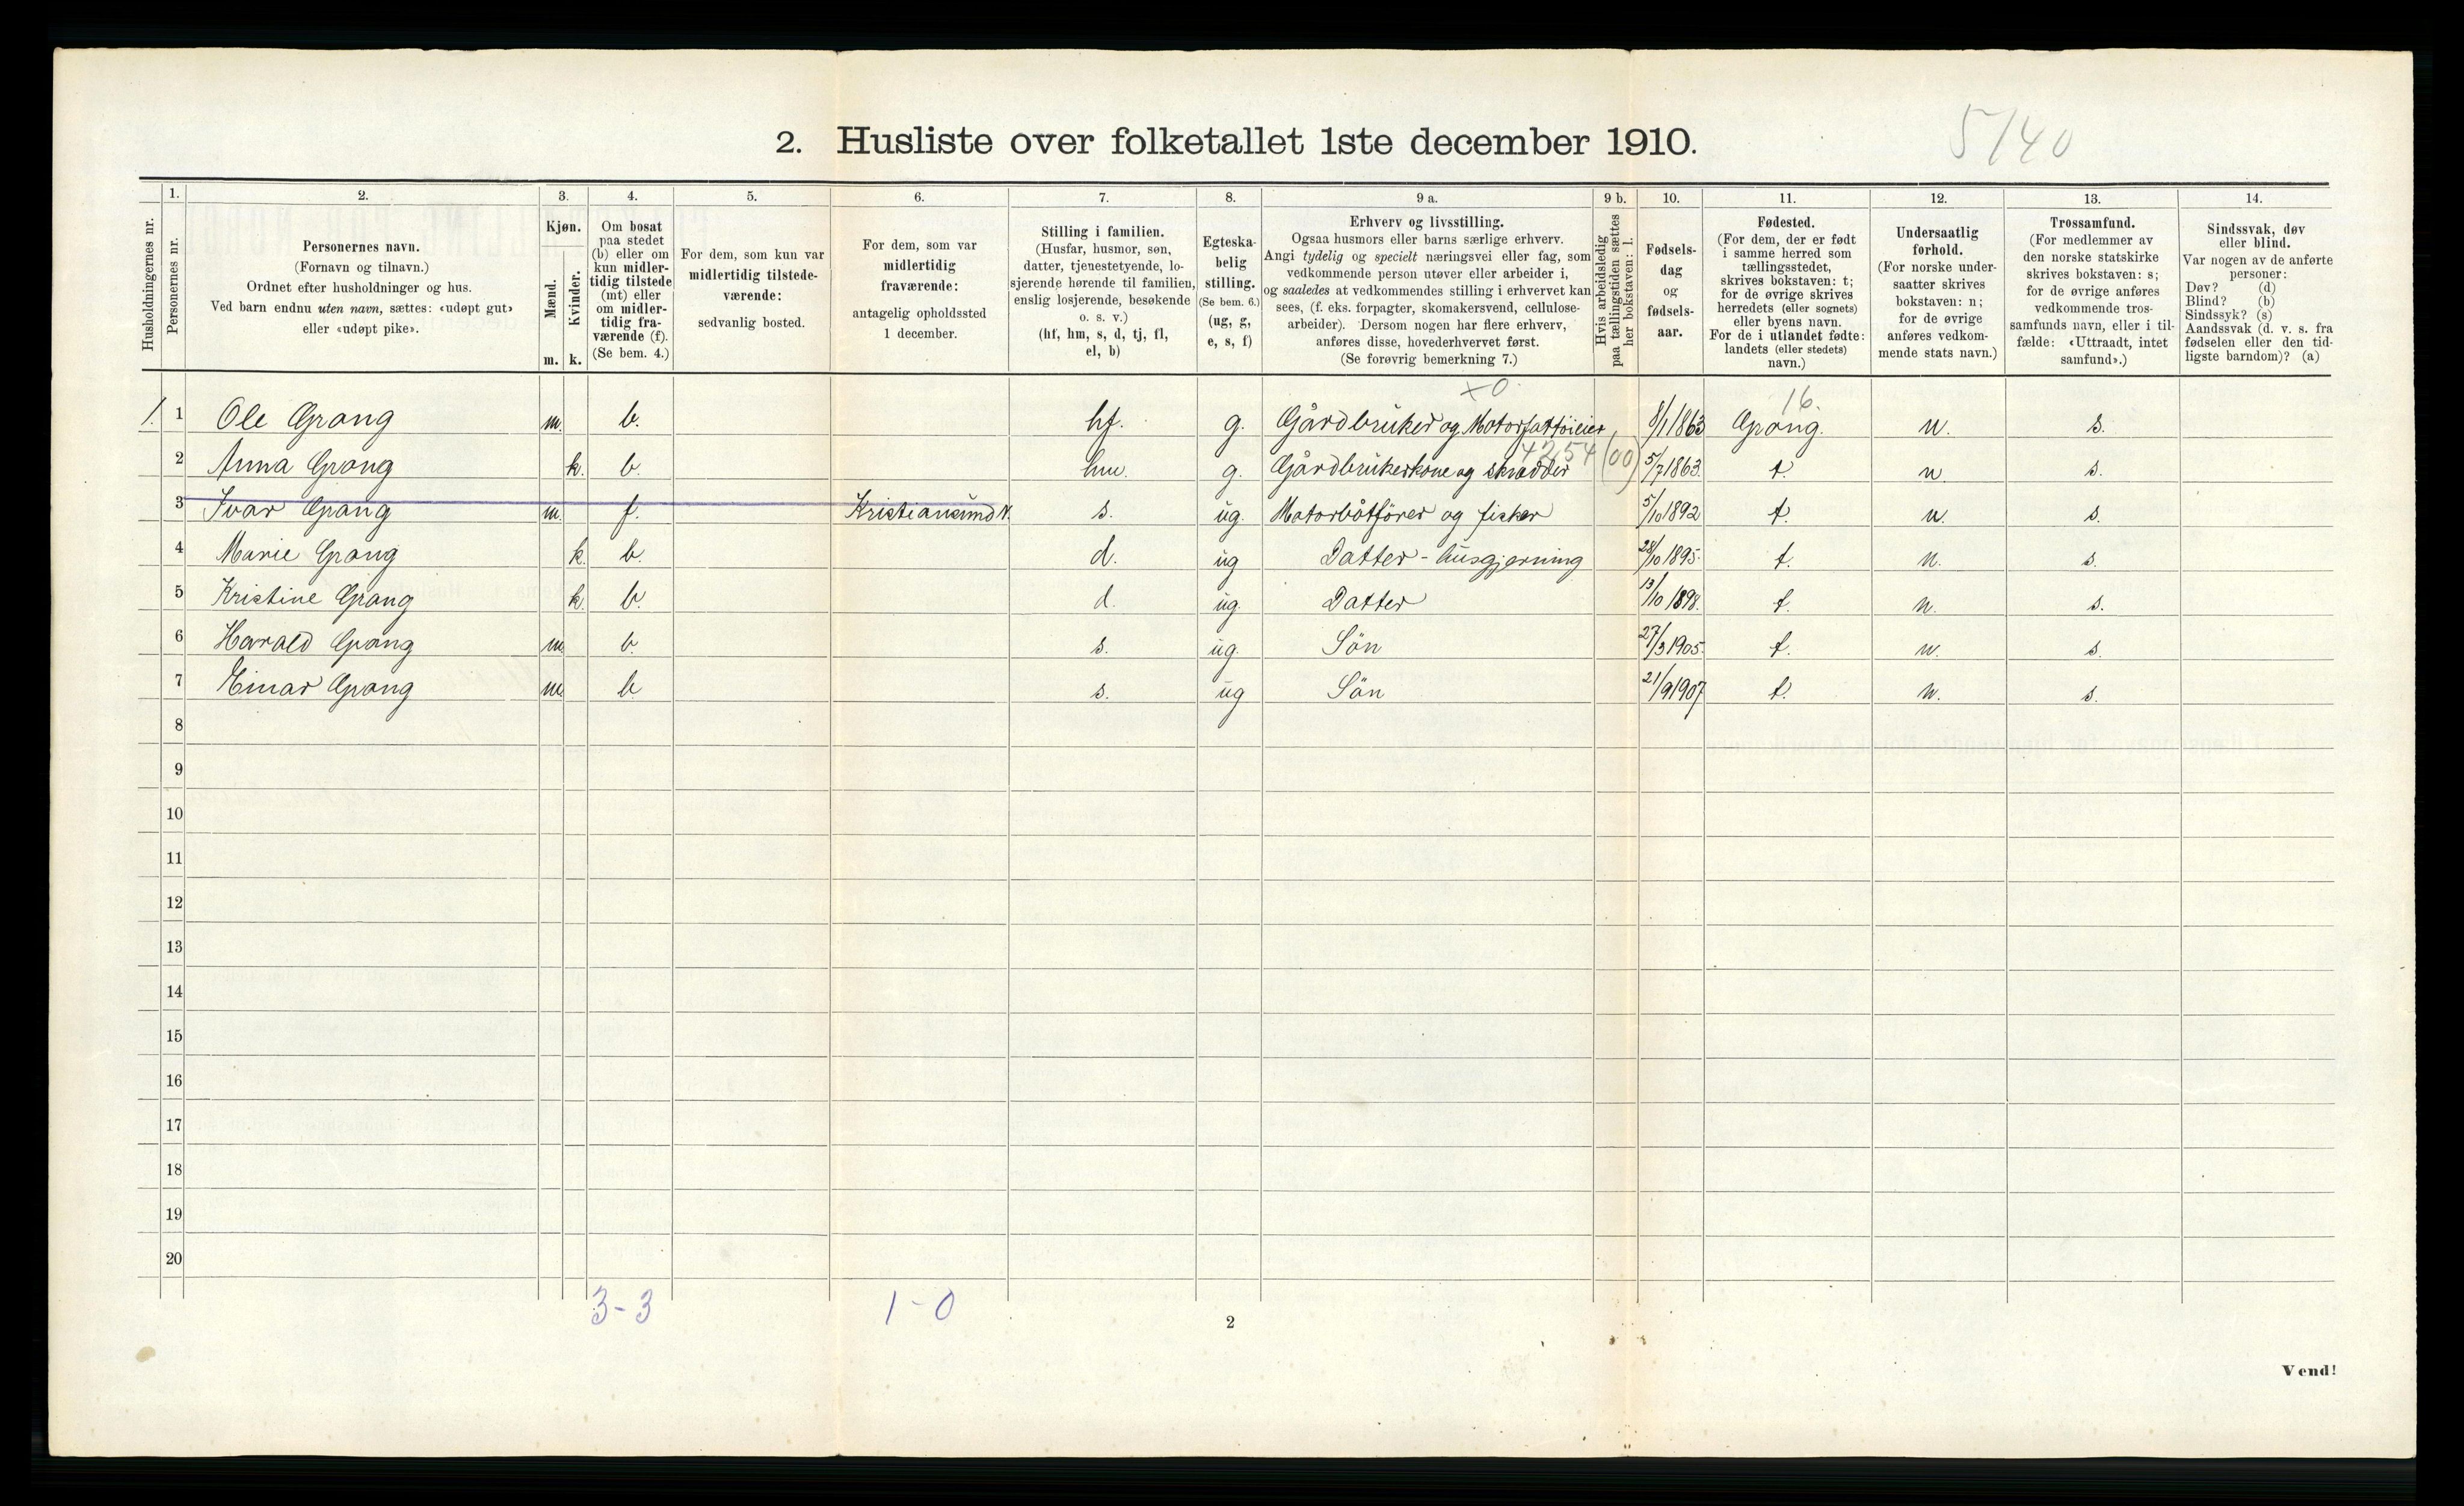 5/40
2. Husliste over folketallet 1ste december 1910.
1. 2. 3. 4. 5. 6. 7. 8. 9 a. 9 b. 10. 11. 12. 13. 14.
Husholdningernes nr.
Personernes nr.
Personernes navn.
(Fornavn og tilnavn.)
Ordnet efter husholdninger og hus.
Ved barn endnu uten navn, sættes: «udøpt gut»
eller «udøpt pike».
Kjøn.
Mænd.
m.
Kvinder.
k.
Om bosat
paa stedet
(b) eller om
kun midler-
tidig tilstede
(mt) eller
om midler-
tidig fra-
værende (f).
(Se bem. 4.)
For dem, som kun var
midlertidig tilstede-
værende:
sedvanlig bosted.
For dem, som var
midlertidig
fraværende:
antagelig opholdssted
1 december.
Stilling i familien.
(Husfar, husmor, søn,
datter, tjenestetyende, lo-
sjerende hørende til familien,
enslig losjerende, besøkende
o. s. v.)
(hf, hm, s, d, tj, fl,
el, b)
Egteska-
belig
stilling.
(Se bem. 6.)
(ug, g,
e, s, f)
Erhverv og livsstilling.
Ogsaa husmors eller barns særlige erhverv.
Angi tydelig og specielt næringsvei eller fag, som
vedkommende person utøver eller arbeider i,
og saaledes at vedkommendes stilling i erhvervet kan
sees, (f. eks. forpagter, skomakersvend, cellulose-
arbeider). Dersom nogen har flere erhverv,
anføres disse, hovederhvervet først.
(Se forøvrig bemerkning 7.)
Hvis arbeidsledig
paa tællingstiden sættes
her bokstaven: l.
Fødsels-
dag
og
fødsels-
aar.
Fødested.
(For dem, der er født
i samme herred som
tællingsstedet,
skrives bokstaven: t;
for de øvrige skrives
herredets (eller sognets)
eller byens navn.
For de i utlandet fødte:
landets (eller stedets)
navn.)
Undersaatlig
forhold.
(For norske under-
saatter skrives
bokstaven: n;
for de øvrige
anføres vedkom-
mende stats navn.)
Trossamfund.
(For medlemmer av
den norske statskirke
skrives bokstaven: s;
for de øvrige anføres
vedkommende tros-
samfunds navn, eller i til-
fælde: «Uttraadt, intet
samfund».)
Sindssvak, døv
eller blind.
Var nogen av de anførte
personer:
Døv? (d)
Blind? (b)
Sindssyk? (s)
Aandssvak (d. v. s. fra
fødselen eller den tid-
ligste barndom)? (a)
x0 16.
1. 1 Ole Grong m. b. hf. g. Gårdbruker og 8/1 1863 Grong. n. s.
4254 (00)
2 Anna Grong k. b. hm. g. Gårdbrukerkone og skrædder 5/7 1863. t. n. s.
3 Ivar Grong m. f. Kristiansund N. s. ug. Motorbåtförer og fisker 5/10 1892 t. n. s.
4 Marie Grong k. b. d. ug Datter - husgjerning 28/10 1895. t. n. s.
5 Kristine Grong k. b. d. ug. Datter 13/10 1898. t. n. s.
6 Harald Grong m. b. s. ug. Sön 27/3 1905. t. n. s.
7 Einar Grong m. b. s. ug Sön 21/9 1907 t. n. s.
8
9
10
11
12
13
14
15
16
17
18
19
20
3-3 1-0
2
Vend!